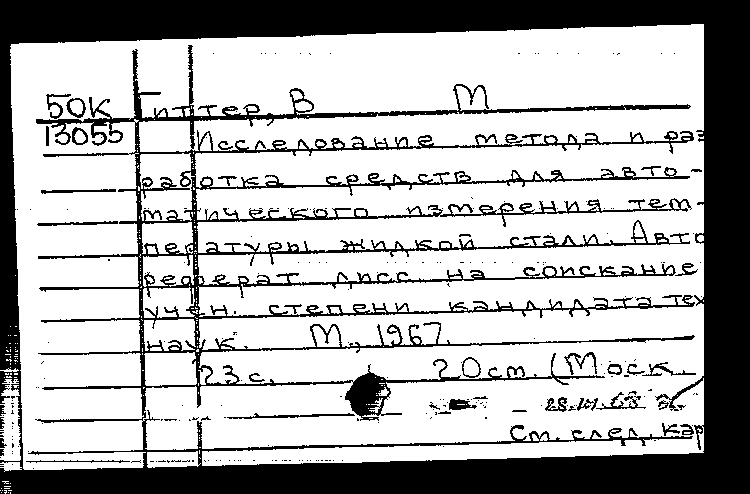 50К Гиттер, В М
13055 Исследование метода и раз
работка средств для авто-
матического измерения тем-
пературы жидкой стали. Авто
реферат дисс на соискание
учен. степени кандидата тех
наук. М., 1967.
23 с. 20 см. (Моск.
См. след. кар